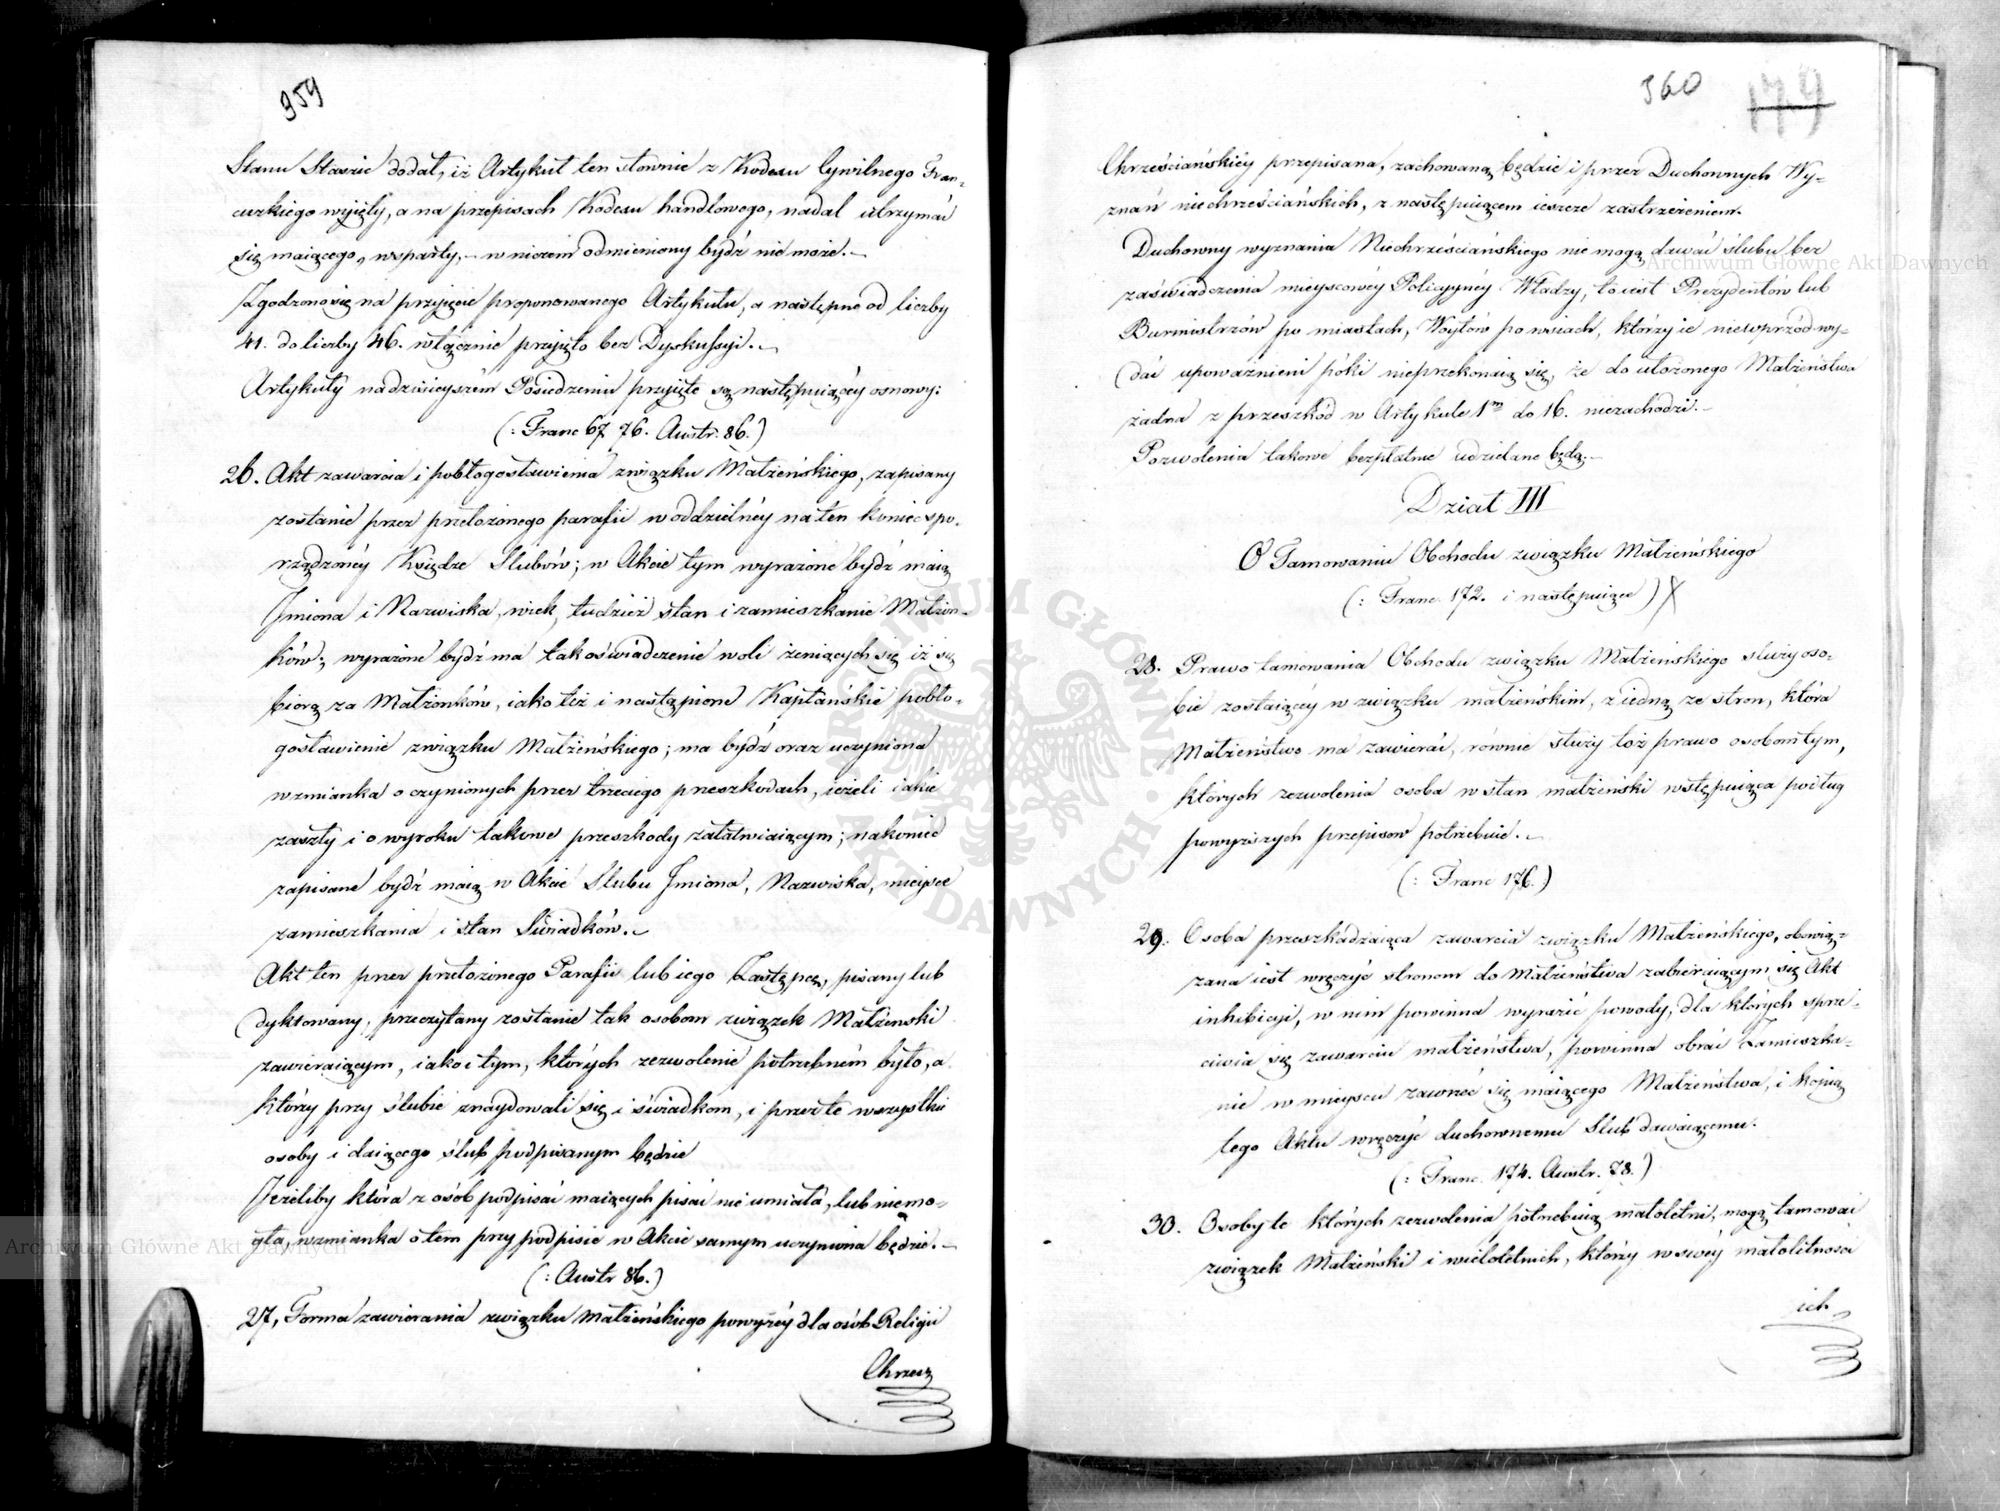 359
Stanu Staszic dodał, iż Artykuł ten słownie z Kodexu Cywilnego Fran-
cuzkiego wyjęty, a na przepisach Kodexu handlowego, nadal utrzymać
się maiącego, wsparty, – w niczem odmieniony bydź nie może. –
Zgodzono się na przyjęcie proponowanego Artykułu, a następne od liczby
41. do liczby 46. włącznie przyjęto bez Dyskussyi. –
Artykuły na dzisieyszém Posiedzeniu przyjęte są następuiącéy osnowy:
(: Franc 67 76. Austr. 86.)
26. Akt zawarcia i pobłogosławienia związku Małżeńskiego, zapisany
zostanie przez przełożonego parafii w oddzielnéy na ten koniec spo-
rządzonéy Księdze Slubów; w Akcie tym wyrażone bydź maią
Jmiona i Nazwiska, wiek, tudzież stan i zamieszkanie Małżon-
ków; wyrażone bydź ma tak oświadczenie woli żeniących się iż się
biorą za Małżonków, iako też i nastąpione Kapłańskie pobło-
gosławienie związku Małżeńskiego; ma bydź oraz uczyniona
wzmianka o czynionych przez trzeciego przeszkodach, ieżeli iakie
zaszły i o wyroku takowe przeszkody załatwiaiącym; nakoniec
zapisane bydź maią w Akcie Slubu Jmiona, Nazwiska, mieysce
zamieszkania i stan Swiadków. –
Akt ten przez przełożonego Parafii lub iego Zastępcę, pisany lub
dyktowany, przeczytany zostanie tak osobom związek Małżenski
zawieraiącym, iako i tym, których zezwolenie potrzebném było, a
którzy przy ślubie znaydowali się i świadkom, i przez te wszystkie
osoby i daiącego ślub podpisanym będzie
Jeżeliby która z osób podpisać maiących pisać nie umiała, lub niemo-
gła, wzmianka o tem przy podpisie w Akcie samym uczyniona będzie. –
(: Austr 86.)
27, Forma zawierania związku małżeńskiego powyżéy dla osób Religii
Chrześ
360 179
Chrześciańskiéy przepisana, zachowaną będzie i przez Duchownych Wy-
znań niechrześciańskich, z następuiącem ieszcze zastrzeżeniem.
Duchowny wyznania Niechrześciańskiego nie mogą dawać ślubu bez
zaświadczenia mieyscowéy Policyynéy Władzy, to iest Prezydentów lub
Burmistrzów po miastach, Woytów po wsiach, którzy ie niewprzód wy-
dać upoważnieni póki nieprzekonaią się, że do ułożonego Małżeństwa
żadna z przeszkód w Artykule 1m do 16. niezachodzi. –
Pozwolenia takowe bezpłatnie udzielane będą. –
Dział III
O Tamowaniu Obchodu związku Małżeńskiego
(: Franc. 172. i następuiące)
28. Prawo tamowania Obchodu związku Małżeńskiego służy oso-
bie zostaiącéy w związku małżeńskim, z iedną ze stron, która
Małżeństwo ma zawierać, równie służy toż prawo osobom tym,
których zezwolenia osoba w stan małżeński wstępuiąca podług
powyższych przepisow potrzebuie. –
(: Franc 176.)
29. Osoba przeszkadzaiąca zawarcia związku Małżeńskiego, obowią-
zana iest wręczyć stronom do Małżeństwa zabieraiącym się Akt
inhibicyi, w nim powinna wyrazić powody, dla których sprze-
ciwia się zawarciu małżeństwa, powinna obrać Zamieszka-
nie w mieyscu zawrzeć się maiącego Małżeństwa, i kopią
tego Aktu wręczyć duchownemu Slub dawaiącemu.
(: Franc. 174. Austr. 78.)
30. Osoby te których zezwolenia potrzebuią małoletni, mogą tamować
związek Małżeński i wieloletnich, którzy w swéy małoletności
ich